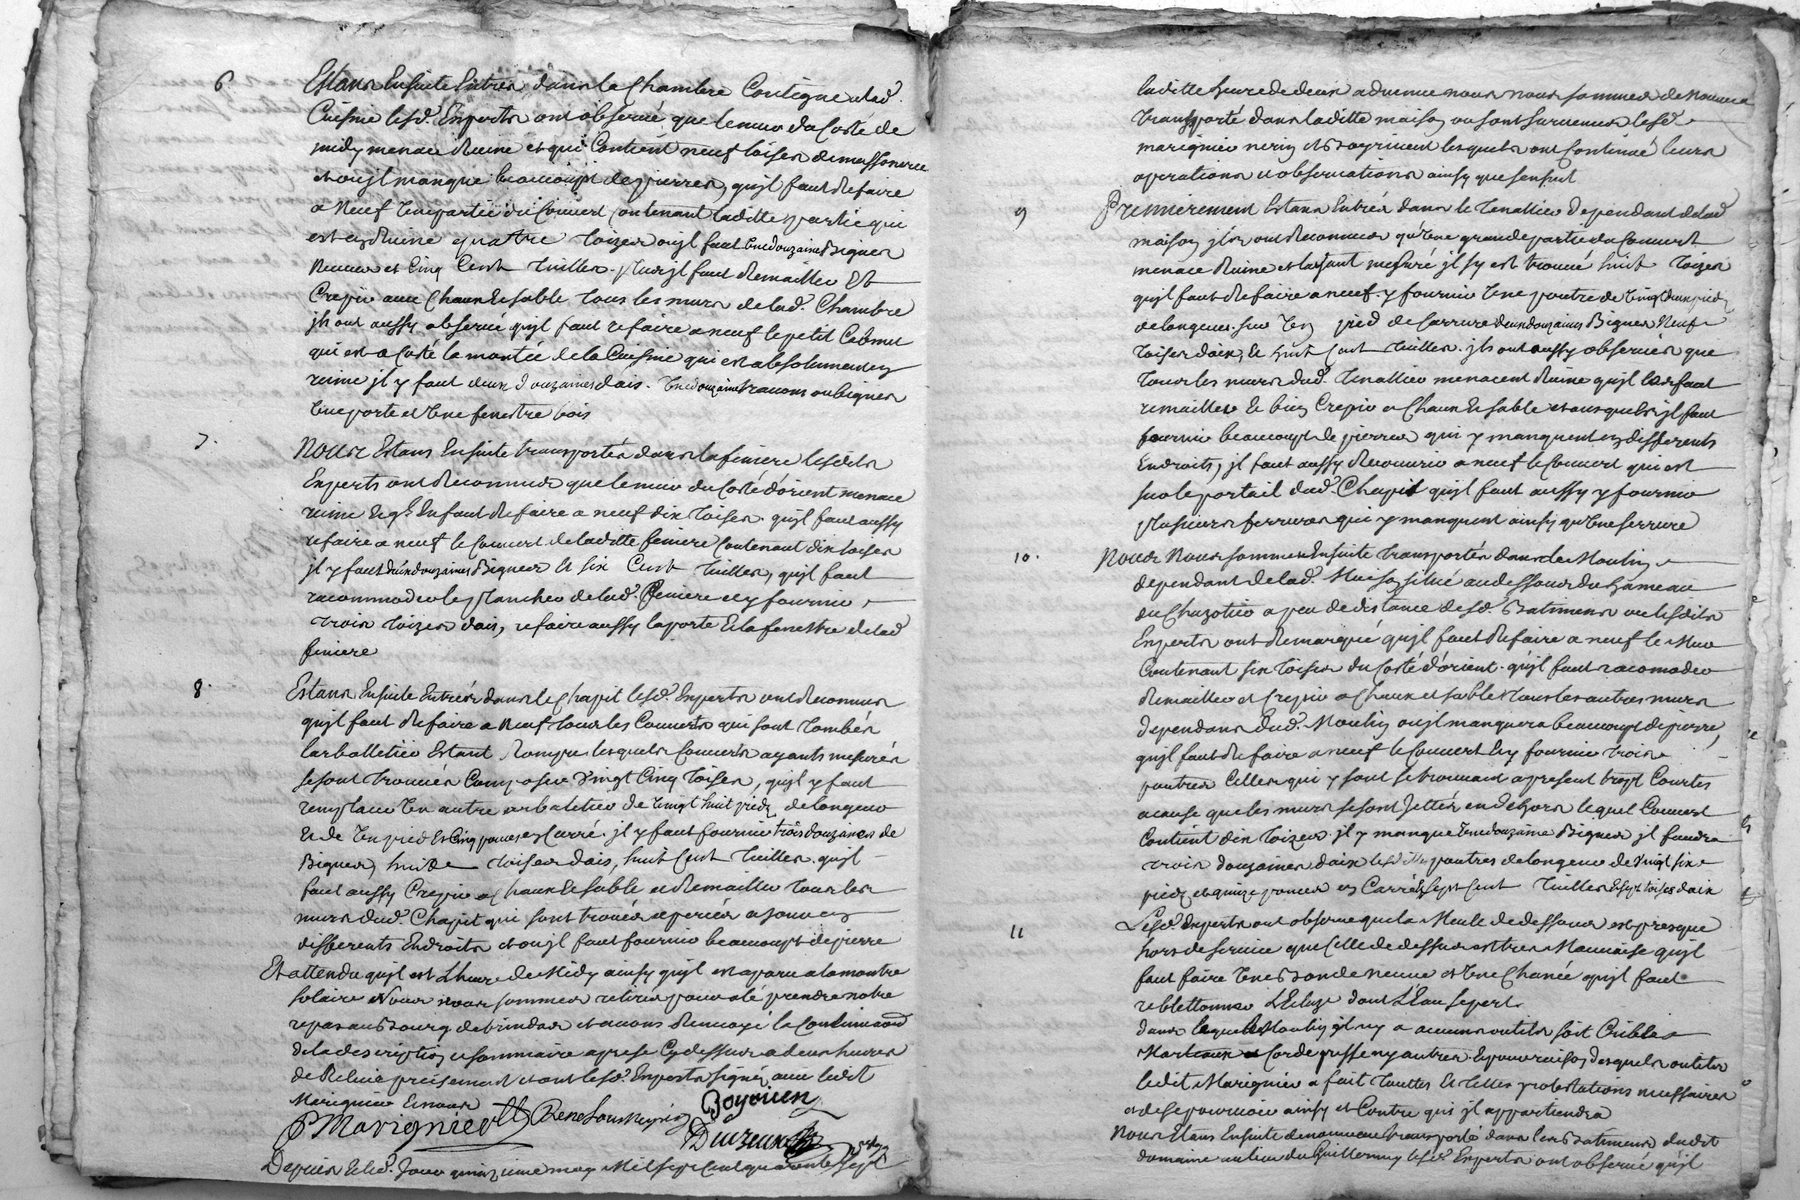 6
Estans Ensuite Entrés dans la Chambre Contigue alad.
Cuisine lesd. Experts ont observé que le mur du Costé de
midy menace Ruine et qui Contient neuf toises de massonerie
et ou jl manque beaucoupt de pierres, qujl faut Refaire
a Neuf Une partie du Couvert Contenant laditte partie qui
est en Ruine quattre toizes ou jl faut Une douzaine Bignes
Neuves et Cinq Cent tuilles. plus jl faut Remailler Et
Crepir avec Chaux Et sable tous les murs de lad. Chambre
jls ont aussy observé qujl faut refaire a neuf le petit Cabinet
qui est a Costé la montée de la Cuisine qui est absolument en
ruine jl y faut deux douzaines dais. Une douzaine travons ou bignes
Une porte et Une fenestre bois
7.
Nous Estans Ensuite transportés dans la feniere lesdits
Experts ont Reconnus que le mur du Costé dorient menace
ruine Et qu'il En faut Refaire a neuf dix toises. qujl faut aussy
refaire a neuf le Couvert de laditte feniere Contenant dix toises
jl y faut deux douzaines Bignes Et six Cent tuilles, qujl faut
racommoder le plancher de lad. feniere et y fournir
trois toizes dais, refaire aussy la porte Et la fenestre de lad
feniere
8.
Estans Ensuite Entrés dans le Chapit lesd. Experts ont Reconnus
qujl faut Refaire a Neuf tous les Couverts qui sont tombés
larballetier Estant Rompu lesquels Couverts ayants mesurés
se sont trouvés Composer Vingt Cinq toises, qujl y faut
remplacer Un autre arbaletier de Vingt huit pieds de longueur
Et de Un pied Et Cinq pouces en Carré. jl y faut fournir trois douzaines de
Bignes, huit toises dais, huit Cent tuilles. qujl
faut aussy Crepir a Chaux Et sable et Remailler tous les
murs dud. Chapit qui sont troués et percés a jour en
differents Endroits et ou jl faut fournir beaucoupt de pierre
Et attendu qujl est Lheure de Midy ainsy qujl est aparu a la montre
solaire Nous nous sommes retirés pour alé prendre notre
repas au Bourg de et avons Renvoyé la Continuaon
de la description sommaire a Cy dessus a deux heures
de Relevé precisement et ont lesd. Experts signés avec ledit
Marignier Et nous
P Marignier René Louis Neyrin Boyouin
Duizeux
Depuis Ledit Jour quinzieme may Mil sept Cent quarante sept
laditte heure de deux advenue nous nous sommes de Nouveau
transporté dans laditte maison ou sont survenus lesd.
marignier nerin et boyrivent lesquels ont Continué leurs
operations et observations ainsy que sensuit
9
Premierement Estans Entrés dans le Tenallier dependant delad
maison jls ont Reconnus qu'Une grande partie du Couvert
menace Ruine et layant mesuré jl sy est trouvé huit toizes
qujl faut Refaire a neuf y fournir Une poutre de Vingt deux pieds
de longeur. sur Un pied de Carrure deux douzaines Bignes Neuf
toises daix, Et huit Cent tuilles. jls ont aussy observés que
tous les murs dud. Tenallier menacent Ruine qujl les faut
remailler Et bien Crepir a Chaux Et sable et ausquels jl faut
fournir beaucoupt de pierres qui y manquent en differents
Endroits, jl faut aussy Recouvrir a neuf le Couvert qui est
sur le portail dud. Chapit qujl faut aussy y fournir
plusieurs ferrures qui y manquent ainsy qu'Une serrure
10.
Nous Nous sommes Ensuite transportés dans le Moulin
dependant de lad. Maison situé au dessous du hameau
du Chazotier a peu de distance desd. Batiments ou lesdits
Experts ont Remarqué qujl faut Refaire a neuf le Mur
Contenant six toises du Costé d'orient. qujl faut racomoder
Remailler et Crepir a Chaux et sable tous les autres murs
dependans dud. Moulin ou jl manquera beaucoupt de pierre,
qujl faut Refaire a neuf le Couvert Et y fournir trois
poutres Celles qui y sont se trouvant a present tropt Courtes
a cause que les murs se sont Jettés en dehors lequel Couvert
Contient dix toizes jl y manque Une douzaine Bignes jl faudra
trois douzaines daix lesdittes poutres de longeur de Vingt six
pieds et quinze pouces en Carré Et sept Cent tuilles Et sept toises daix
11
Lesd. Experts ont observé que la Meule de dessous est presque
hors de service que Celle de dessus est tres Mauvaise qujl
faut faire Une Bande neuve et Une Chanée qujl faut
reblettonner L'Ecluze dont L'Eau se pert
dans lequel Moulin jl ny a aucuns outils soit Crible
Marteaux Corde presse ny autres Et pour raison desquels outils
ledit Marignier a fait touttes Et telles protestations necessaires
et de se pourvoir ainsy et Contre qui jl appartiendra
Nous Etans Ensuite de nouveau transporté dans les Batimens dudit
domaine au lieu du Guillermy lesd. Experts ont observé qujl